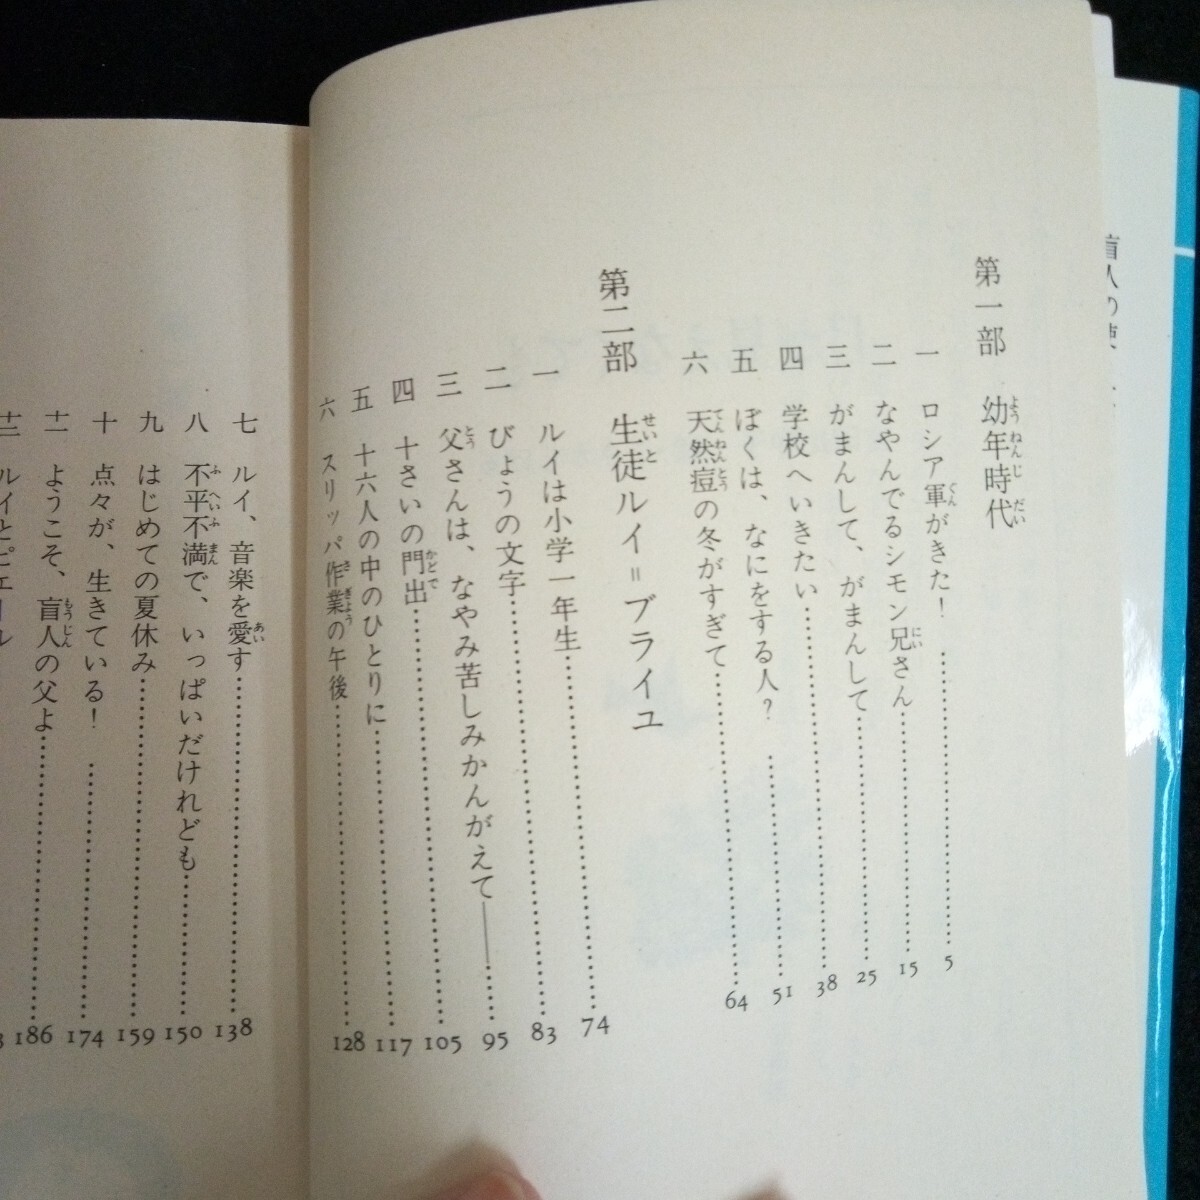 盲人の
第一部 幼年時代
一 ロシア軍がきた！ 5
二 なやんでるシモン兄さん 15
三 がまんして、がまんして 25
四 学校へいきたい 38
五 ぼくは、なにをする人？ 51
六 天然痘の冬がすぎて 64
第二部 生徒ルイ＝ブライユ
一 ルイは小学一年生 74
二 びょうの文字 83
三 父さんは、なやみ苦しみかんがえて—— 95
四 十さいの門出 105
五 十六人の中のひとりに 117
六 スリッパ作業の午後 128
七 ルイ、音楽を愛す 138
八 不平不満で、いっぱいだけれども 150
九 はじめての夏休み 159
十 点々が、生きている！ 174
十一 ようこそ、盲人の父よ 186
十二 ルイとピエール